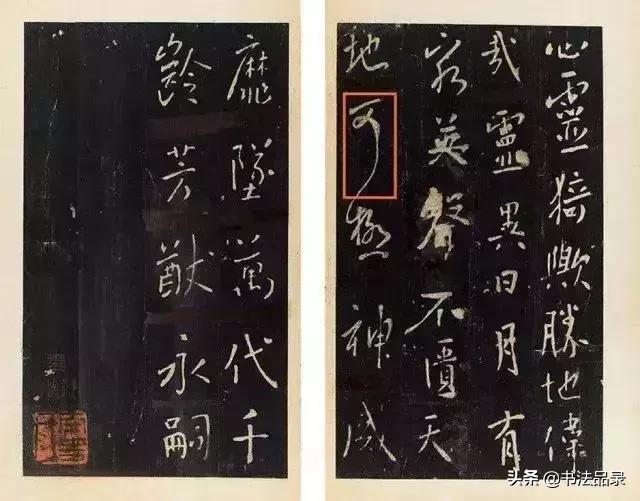 心靈猗歟勝地偉
哉靈異日月有
窮英聲不匱天
地可極神威
靡墜萬代千
齡芳猷永嗣
头条 @书法品录